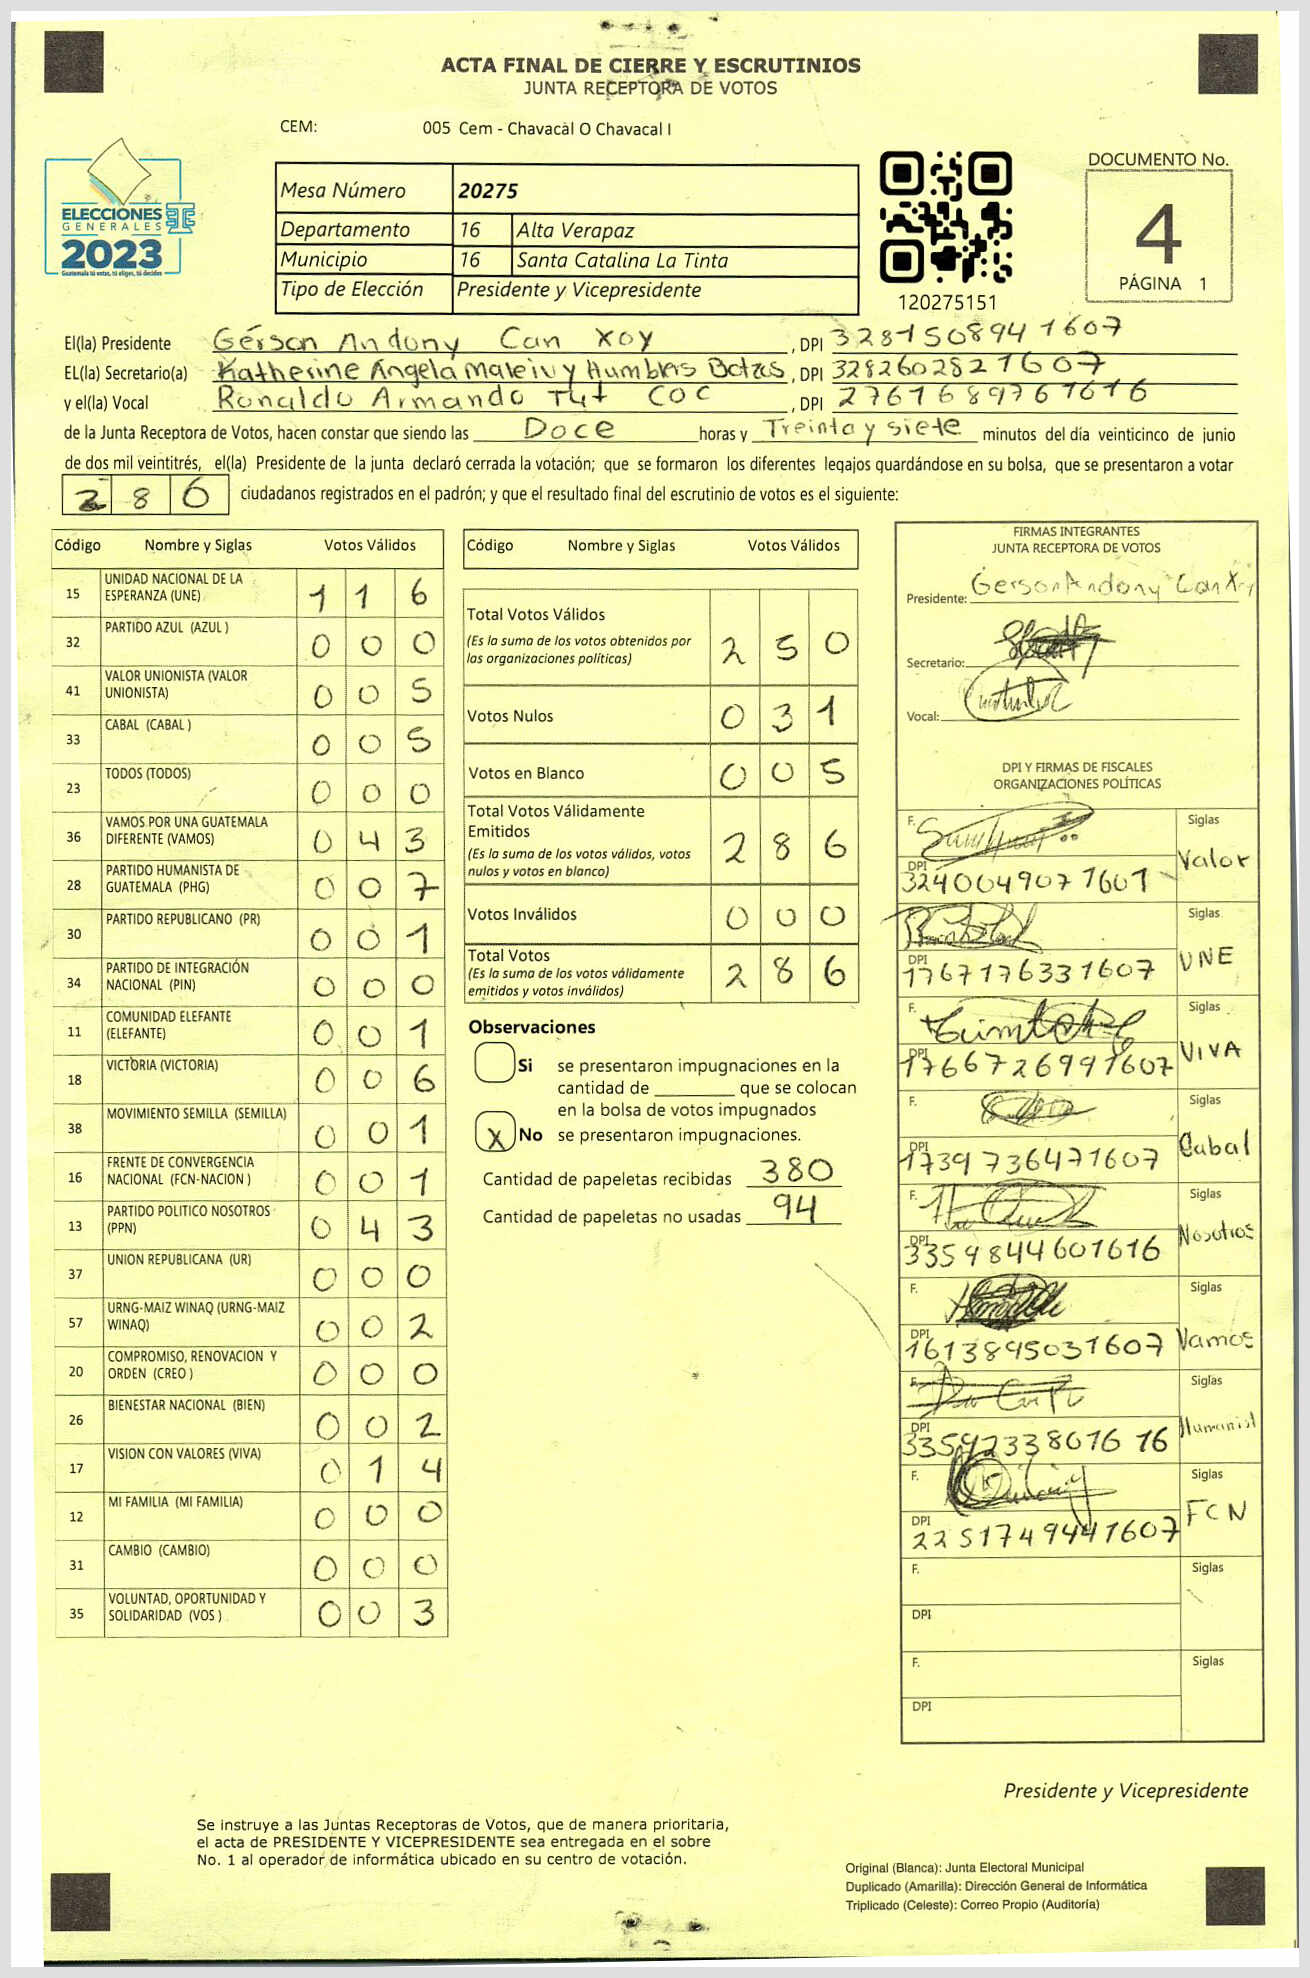 ACTA FINAL DE CIERRE Y ESCRUTINIOS
JUNTA RECEPTORA DE VOTOS
CEM: 005 Cem - Chavacal O Chavacal I
ELECCIONES
GENERALES
2023
Guatemala tú votas, tú eliges, tú decides
Mesa Número 20275
Departamento 16 Alta Verapaz
Municipio 16 Santa Catalina La Tinta
Tipo de Elección Presidente y Vicepresidente
120275151
DOCUMENTO No.
4
PÁGINA 1
El(la) Presidente Gérson Andony Can Xoy, DPI 3281508941607
EL(la) Secretario(a) Katherine Angela Humbles, DPI 3282602821607
y el(la) Vocal Ronaldo Armando Tut COC, DPI 2761689761616
de la Junta Receptora de Votos, hacen constar que siendo las Doce horas y Treinta y siete minutos del día veinticinco de junio
de dos mil veintitrés, el(la) Presidente de la junta declaró cerrada la votación; que se formaron los diferentes legajos guardándose en su bolsa, que se presentaron a votar
286 ciudadanos registrados en el padrón; y que el resultado final del escrutinio de votos es el siguiente:
Código Nombre y Siglas Votos Válidos
15 UNIDAD NACIONAL DE LA ESPERANZA (UNE) 1 1 6
32 PARTIDO AZUL (AZUL ) 0 0 0
41 VALOR UNIONISTA (VALOR UNIONISTA) 0 0 5
33 CABAL (CABAL ) 0 0 5
23 TODOS (TODOS) 0 0 0
36 VAMOS POR UNA GUATEMALA DIFERENTE (VAMOS) 0 4 3
28 PARTIDO HUMANISTA DE GUATEMALA (PHG) 0 0 7
30 PARTIDO REPUBLICANO (PR) 0 0 1
34 PARTIDO DE INTEGRACIÓN NACIONAL (PIN) 0 0 0
11 COMUNIDAD ELEFANTE (ELEFANTE) 0 0 1
18 VICTORIA (VICTORIA) 0 0 6
38 MOVIMIENTO SEMILLA (SEMILLA) 0 0 1
16 FRENTE DE CONVERGENCIA NACIONAL (FCN-NACION ) 0 0 1
13 PARTIDO POLITICO NOSOTROS (PPN) 0 4 3
37 UNION REPUBLICANA (UR) 0 0 0
57 URNG-MAIZ WINAQ (URNG-MAIZ WINAQ) 0 0 2
20 COMPROMISO, RENOVACION Y ORDEN (CREO ) 0 0 0
26 BIENESTAR NACIONAL (BIEN) 0 0 2
17 VISION CON VALORES (VIVA) 0 1 4
12 MI FAMILIA (MI FAMILIA) 0 0 0
31 CAMBIO (CAMBIO) 0 0 0
35 VOLUNTAD, OPORTUNIDAD Y SOLIDARIDAD (VOS ) 0 0 3
Código Nombre y Siglas Votos Válidos
Total Votos Válidos 2 5 0
(Es la suma de los votos obtenidos por
las organizaciones políticas)
Votos Nulos 0 3 1
Votos en Blanco 0 0 5
Total Votos Válidamente
Emitidos 2 8 6
(Es la suma de los votos válidos, votos
nulos y votos en blanco)
Votos Inválidos 0 0 0
Total Votos 2 8 6
(Es la suma de los votos válidamente
emitidos y votos inválidos)
Observaciones
Si se presentaron impugnaciones en la
cantidad de ________ que se colocan
en la bolsa de votos impugnados
X No se presentaron impugnaciones.
Cantidad de papeletas recibidas 380
Cantidad de papeletas no usadas 94
FIRMAS INTEGRANTES
JUNTA RECEPTORA DE VOTOS
Presidente: Gerson Andony Can Xoy
Secretario:
Vocal:
DPI Y FIRMAS DE FISCALES
ORGANIZACIONES POLÍTICAS
F. Siglas
Valor
DPI 3240049071601
F. Siglas
UNE
DPI 1767176331607
F. Siglas
VIVA
DPI 1766726991607
F. Siglas
Cabal
DPI 1739736471607
F. Siglas
Nosotros
DPI 3359844601616
F. Siglas
Vamos
DPI 1613895031607
F. Siglas
Humanist
DPI 3359233801616
F. Siglas
FCN
DPI 2251749441607
F. Siglas
DPI
F. Siglas
DPI
Presidente y Vicepresidente
Se instruye a las Juntas Receptoras de Votos, que de manera prioritaria,
el acta de PRESIDENTE Y VICEPRESIDENTE sea entregada en el sobre
No. 1 al operador de informática ubicado en su centro de votación.
Original (Blanca): Junta Electoral Municipal
Duplicado (Amarilla): Dirección General de Informática
Triplicado (Celeste): Correo Propio (Auditoría)